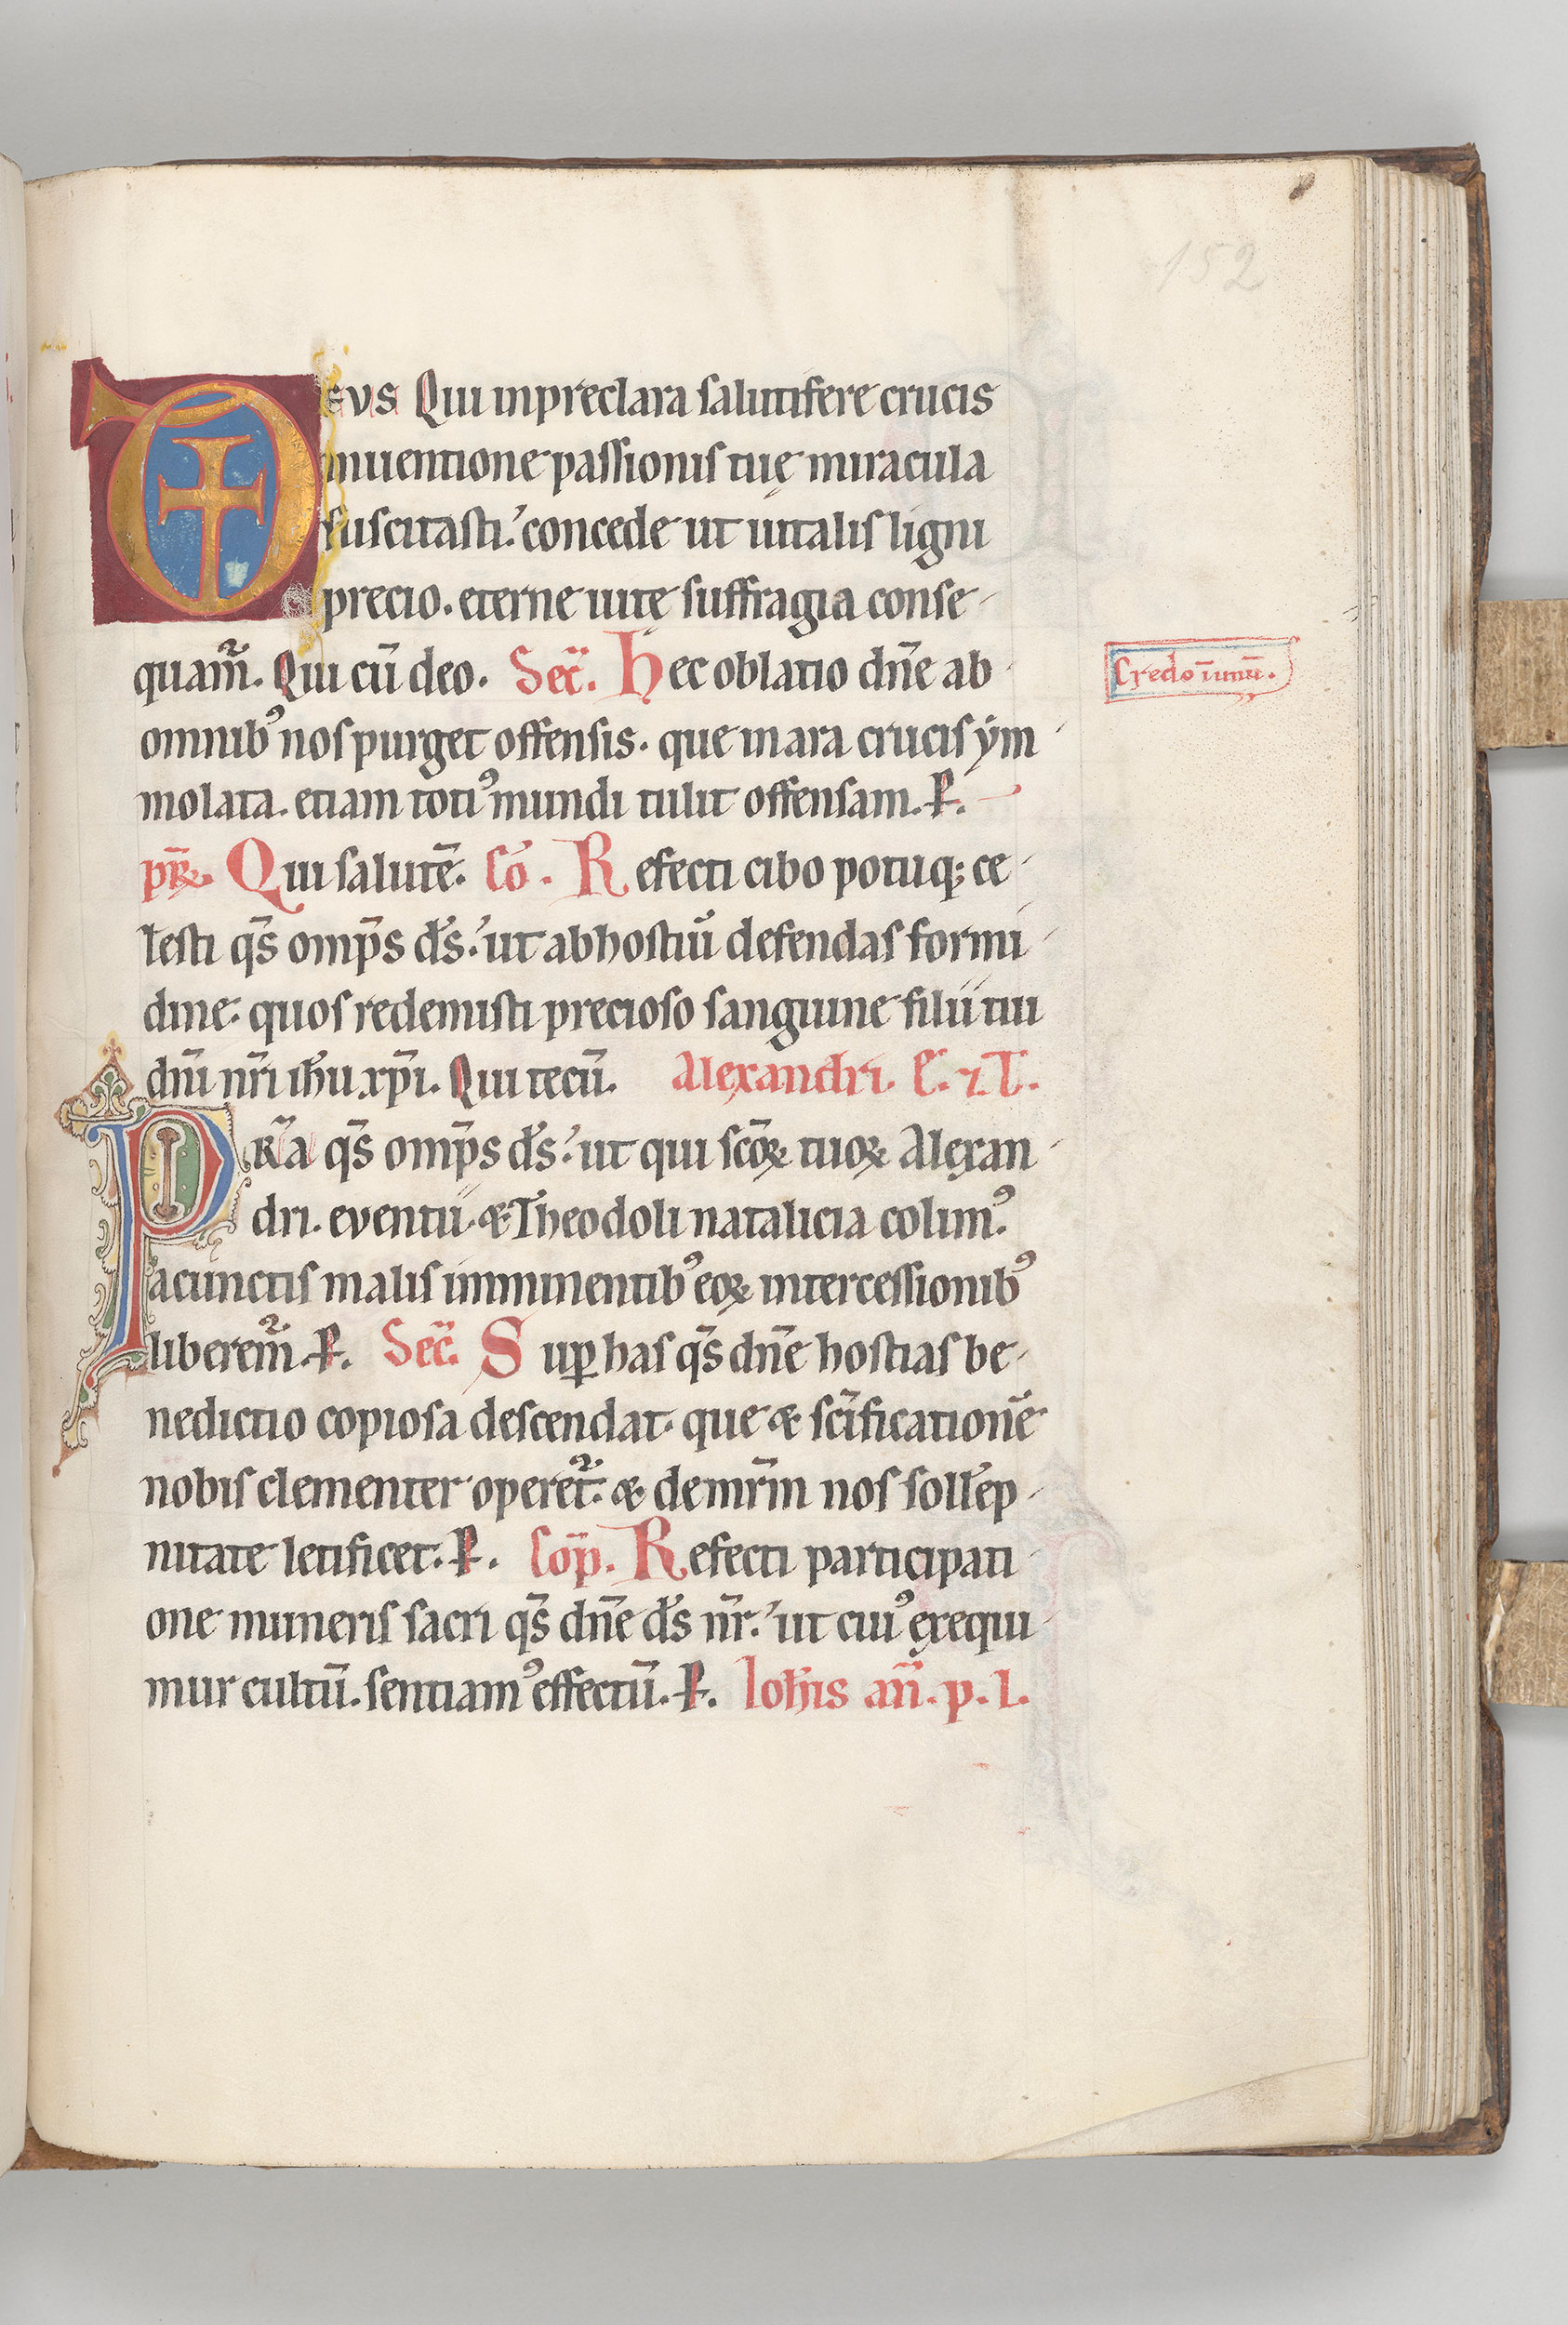 152
Deus Qui in preclara salutifere crucis
inuentione passionis tuę miracula
suscitasti. concede ut uitalis ligni
precio. eterne uitę suffragia conse-
quam̃. Qui cū deo. Sec̃. Hec oblatio dn̄e ab
Credo ī unū.
omnibꝰ nos purget offensis. que in ara crucis ẏm-
molata. etiam totiꝰ mundi tulit offensam. P.
pr̄. Qui salutē. Co. Refecti cibo potuqꝫ ce-
lesti qs̄ omp̄s ds̄. ut ab hostiū defendas formi-
dine. quos redemisti precioso sanguine filii tui
dn̄i nr̄i ihu xp̄i. Qui tecū. Alexandri. E. ⁊ T.
PRa qs̄ omp̄s ds̄. ut qui scōꝝ tuoꝝ Alexan-
dri. eventii. & Theodoli natalicia colimꝰ.
a cunctis malis imminentibꝰ eoꝝ intercessionibꝰ
liberem̃. P. Sec̃. Suꝑ has qs̄ dn̄e hostias be-
nedictio copiosa descendat. que & sc̄ificationē
nobis clementer operet̃. & de mr̄m nos sollēp-
nitate letificet. P. Co̅p. Refecti participati-
one muneris sacri qs̄ dn̄e ds̄ nr̄. ut cuiꝰ exequi-
mur cultū. sentiamꝰ effectū. P. Ioh̄is an̄. p. l.